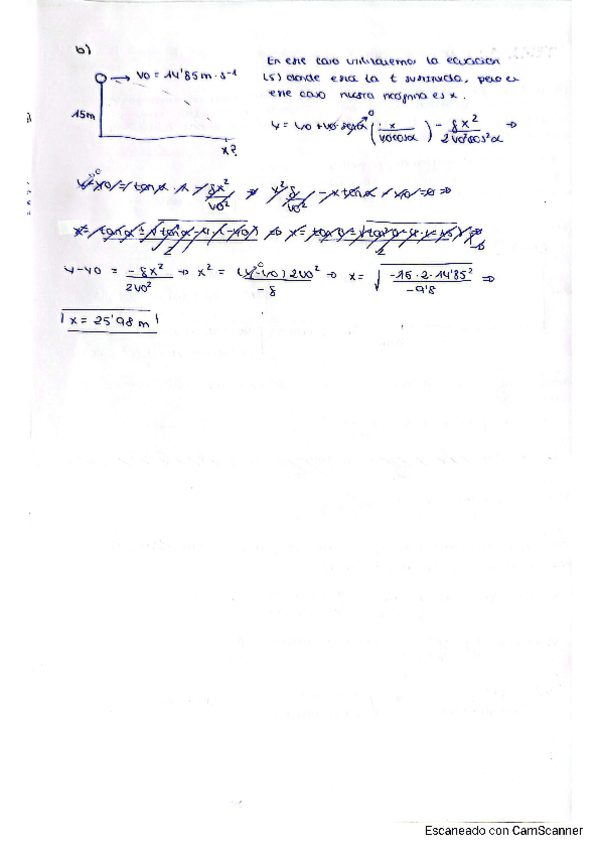 b)
V0 = 14'85 m · s⁻¹
15m
x?
En este caso utilizaremos la ecuación
(5) donde está la t sustituida, pero en
este caso nuestra incógnita es x.
y = y0 + v0 · senα (x / v0cosα) - gx² / 2v0²cos²α ⇒
y - y0 = -gx² / 2v0² → x² = (y - y0) 2v0² / -g → x = √(-15 · 2 · 14'85² / -9'8) ⇒
x = 25'98 m
Escaneado con CamScanner